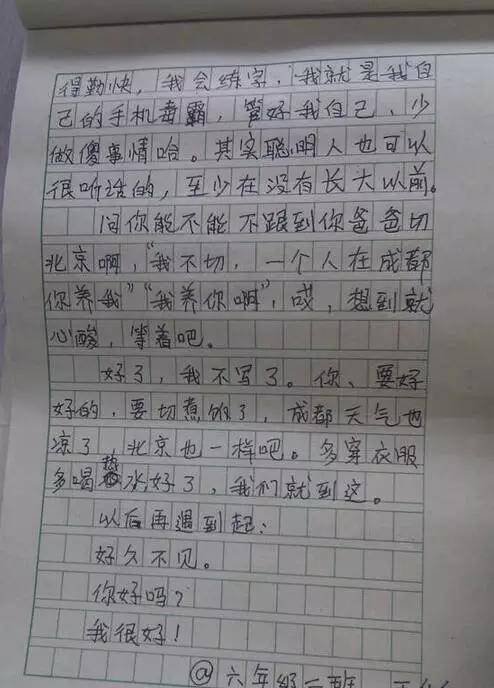 得勤快，我会练字，我就是我自
己的手机毒霸，管好我自己、少
做傻事情哈。其实聪明人也可以
很听话的，至少在没有长大以前。
问你能不能不跟到你爸爸切
北京啊，“我不切，一个人在成都
你养我”“我养你啊”，哎，想到就
心酸，等着吧。
好了，我不写了。你、要好
好的，要切煮饭了，成都天气也
凉了，北京也一样吧。多穿衣服
多喝热水好了，我们就到这。
以后再遇到起：
好久不见。
你好吗？
我很好！
@六年级二班